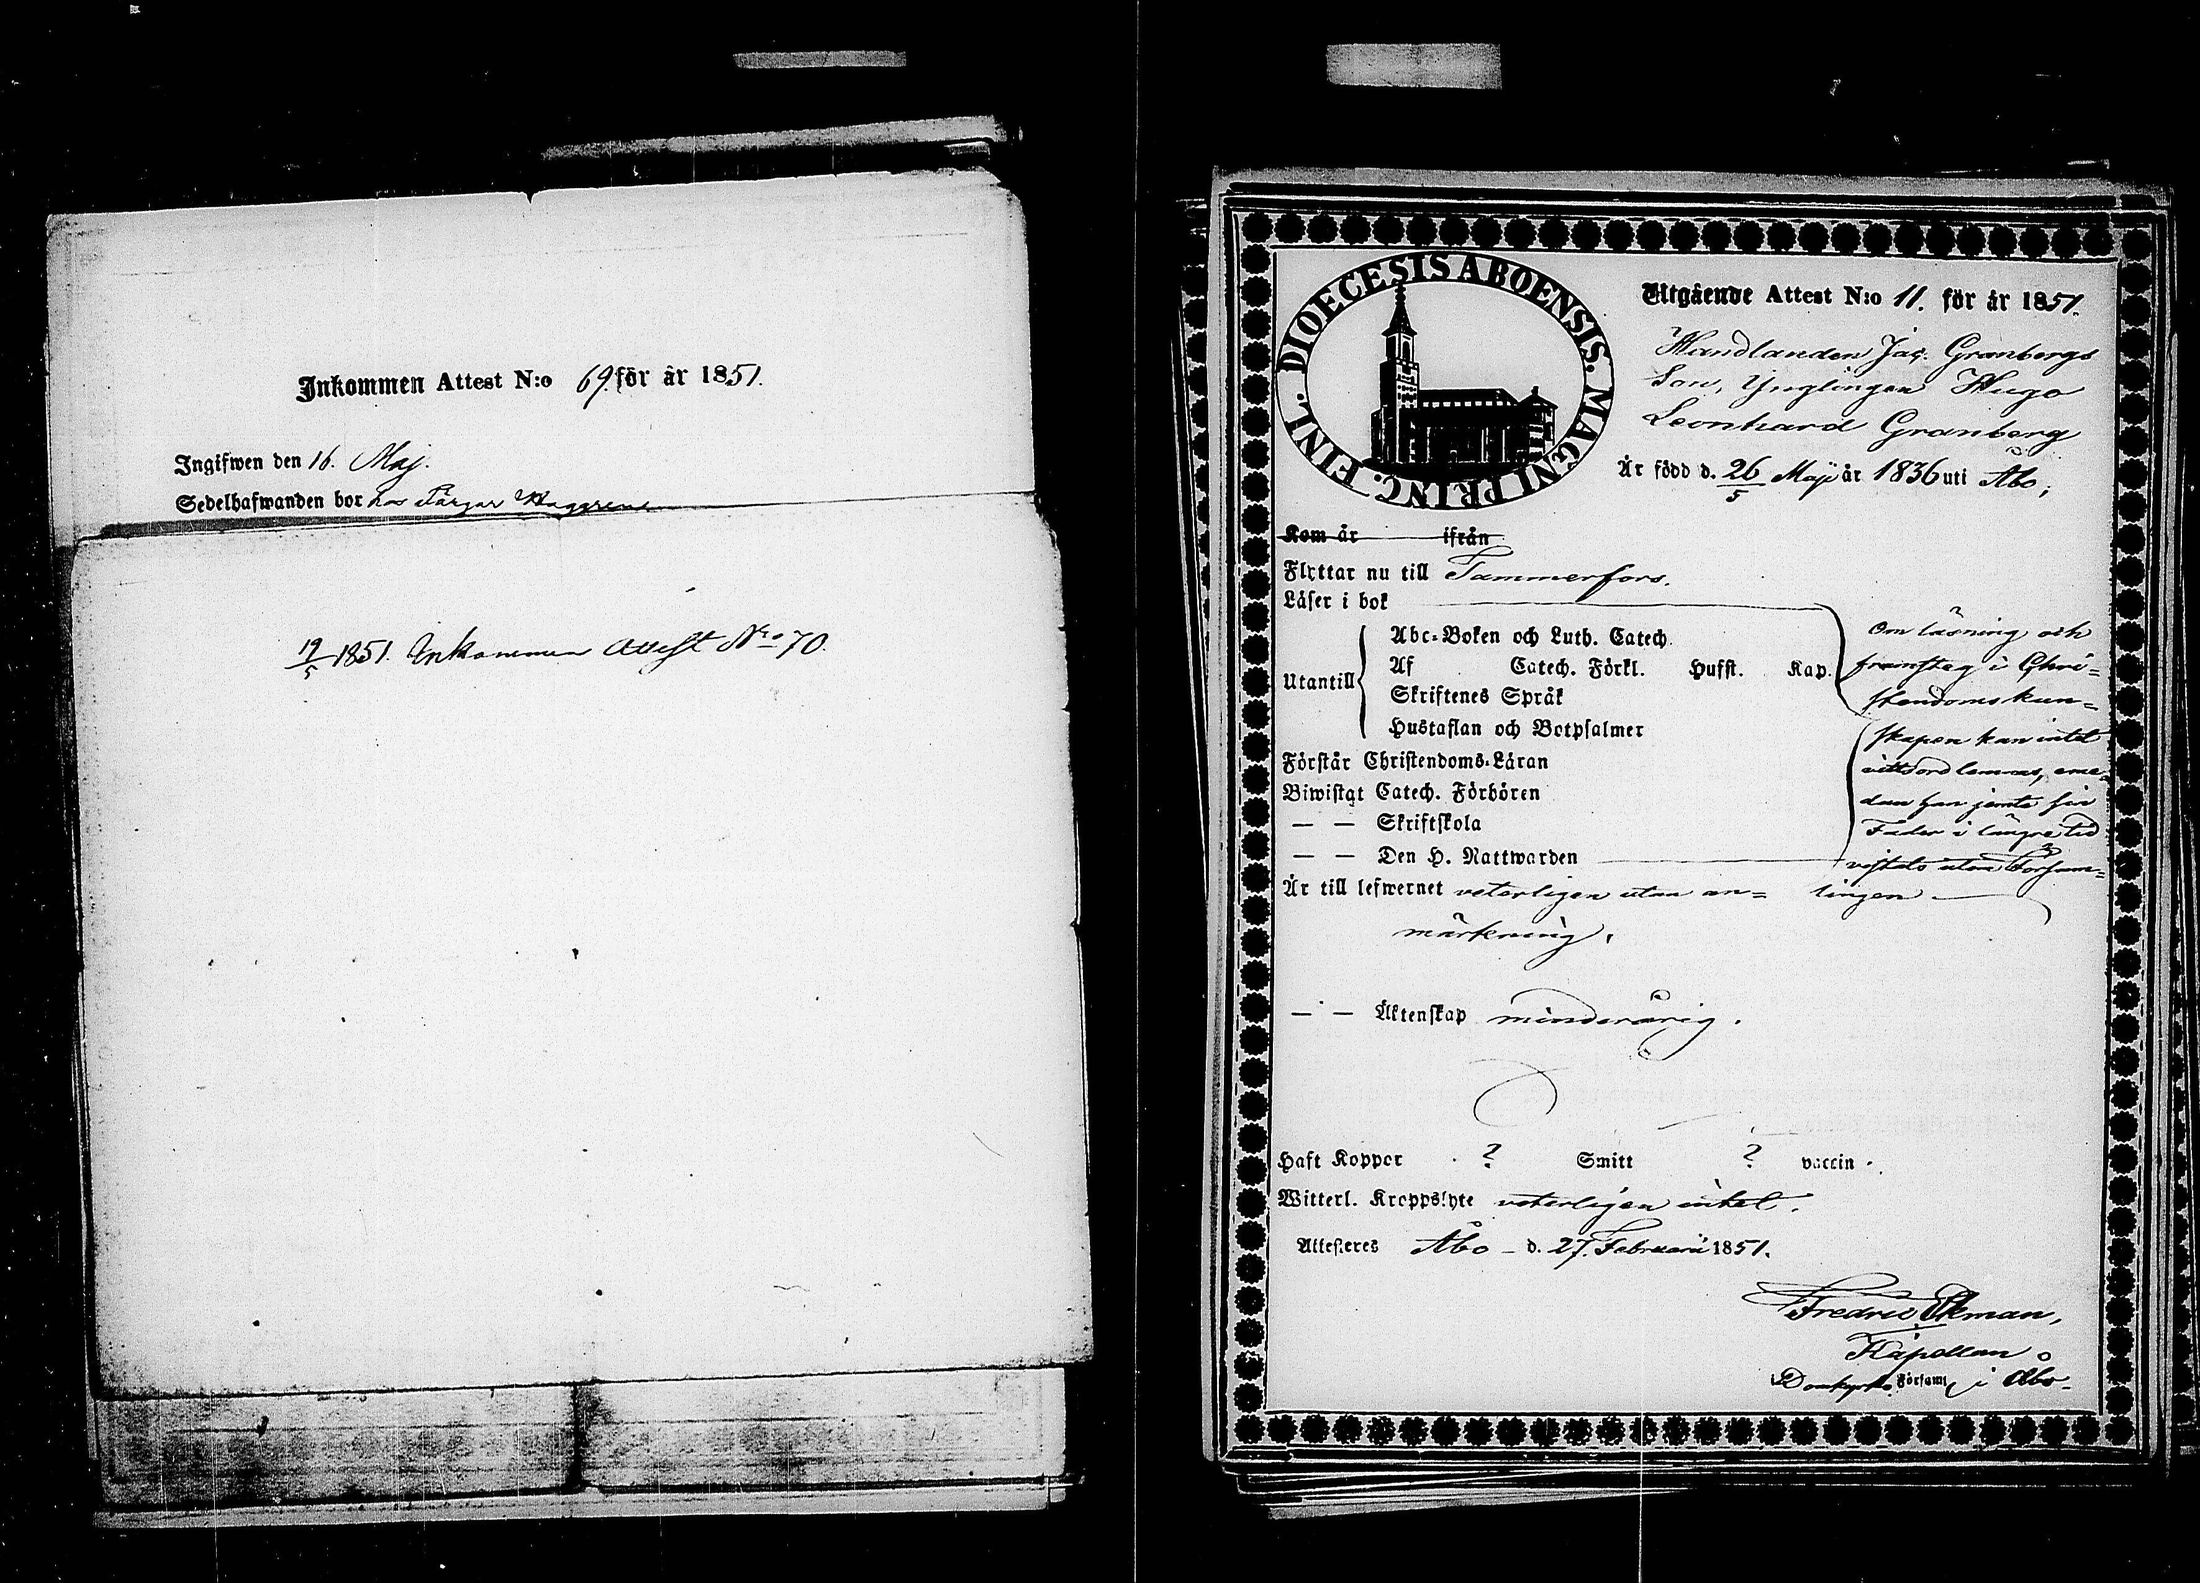 Inkommen Attest N:o 69. för år 1851.
Ingifwen den 16. Maj.
Sedelhafwanden bor hos Färgar Haggrens
19/5 1851. Inkommen Attest No 70.
DIOECESIS ABOENSIS. MAGNI PRINC. FINL.
Utgående Attest N:o 11. för år 1851.
Handlanden Jac. Granbergs
Son, Ynglingen Hugo
Leonhard Granberg
Är född d. 26/5 Maji år 1836 uti Åbo;
Kom år ifrån
Flyttar nu till Tammerfors.
Läser i bok
Utantill
Abc-Boken och Luth. Catech.
Af Catech. Förkl. Hufst. Kap.
Skriftenes Språk
Hustaflan och Botpsalmer
Förstår Christendoms-Läran
Biwistat Catech. Förhören
— — Skriftskola
— — Den H. Nattwarden
Om läsning och
framsteg i Chri=
stendomskun=
skapen kan intet
vittsord lemnas, eme=
dan han jemte sin
Fader i längre tid
vistats utom Försam=
lingen
Är till lefwernet veterligen utan an=
märkning.
— — Äktenskap minderårig.
Haft Koppor ? Smitt ? vaccin.
Witterl. Kroppslyte veterligen intet.
Attesteres Åbo d. 27. Februarii 1851.
Fredric Ekman,
Kapellan
Domkyrko Församl i Åbo